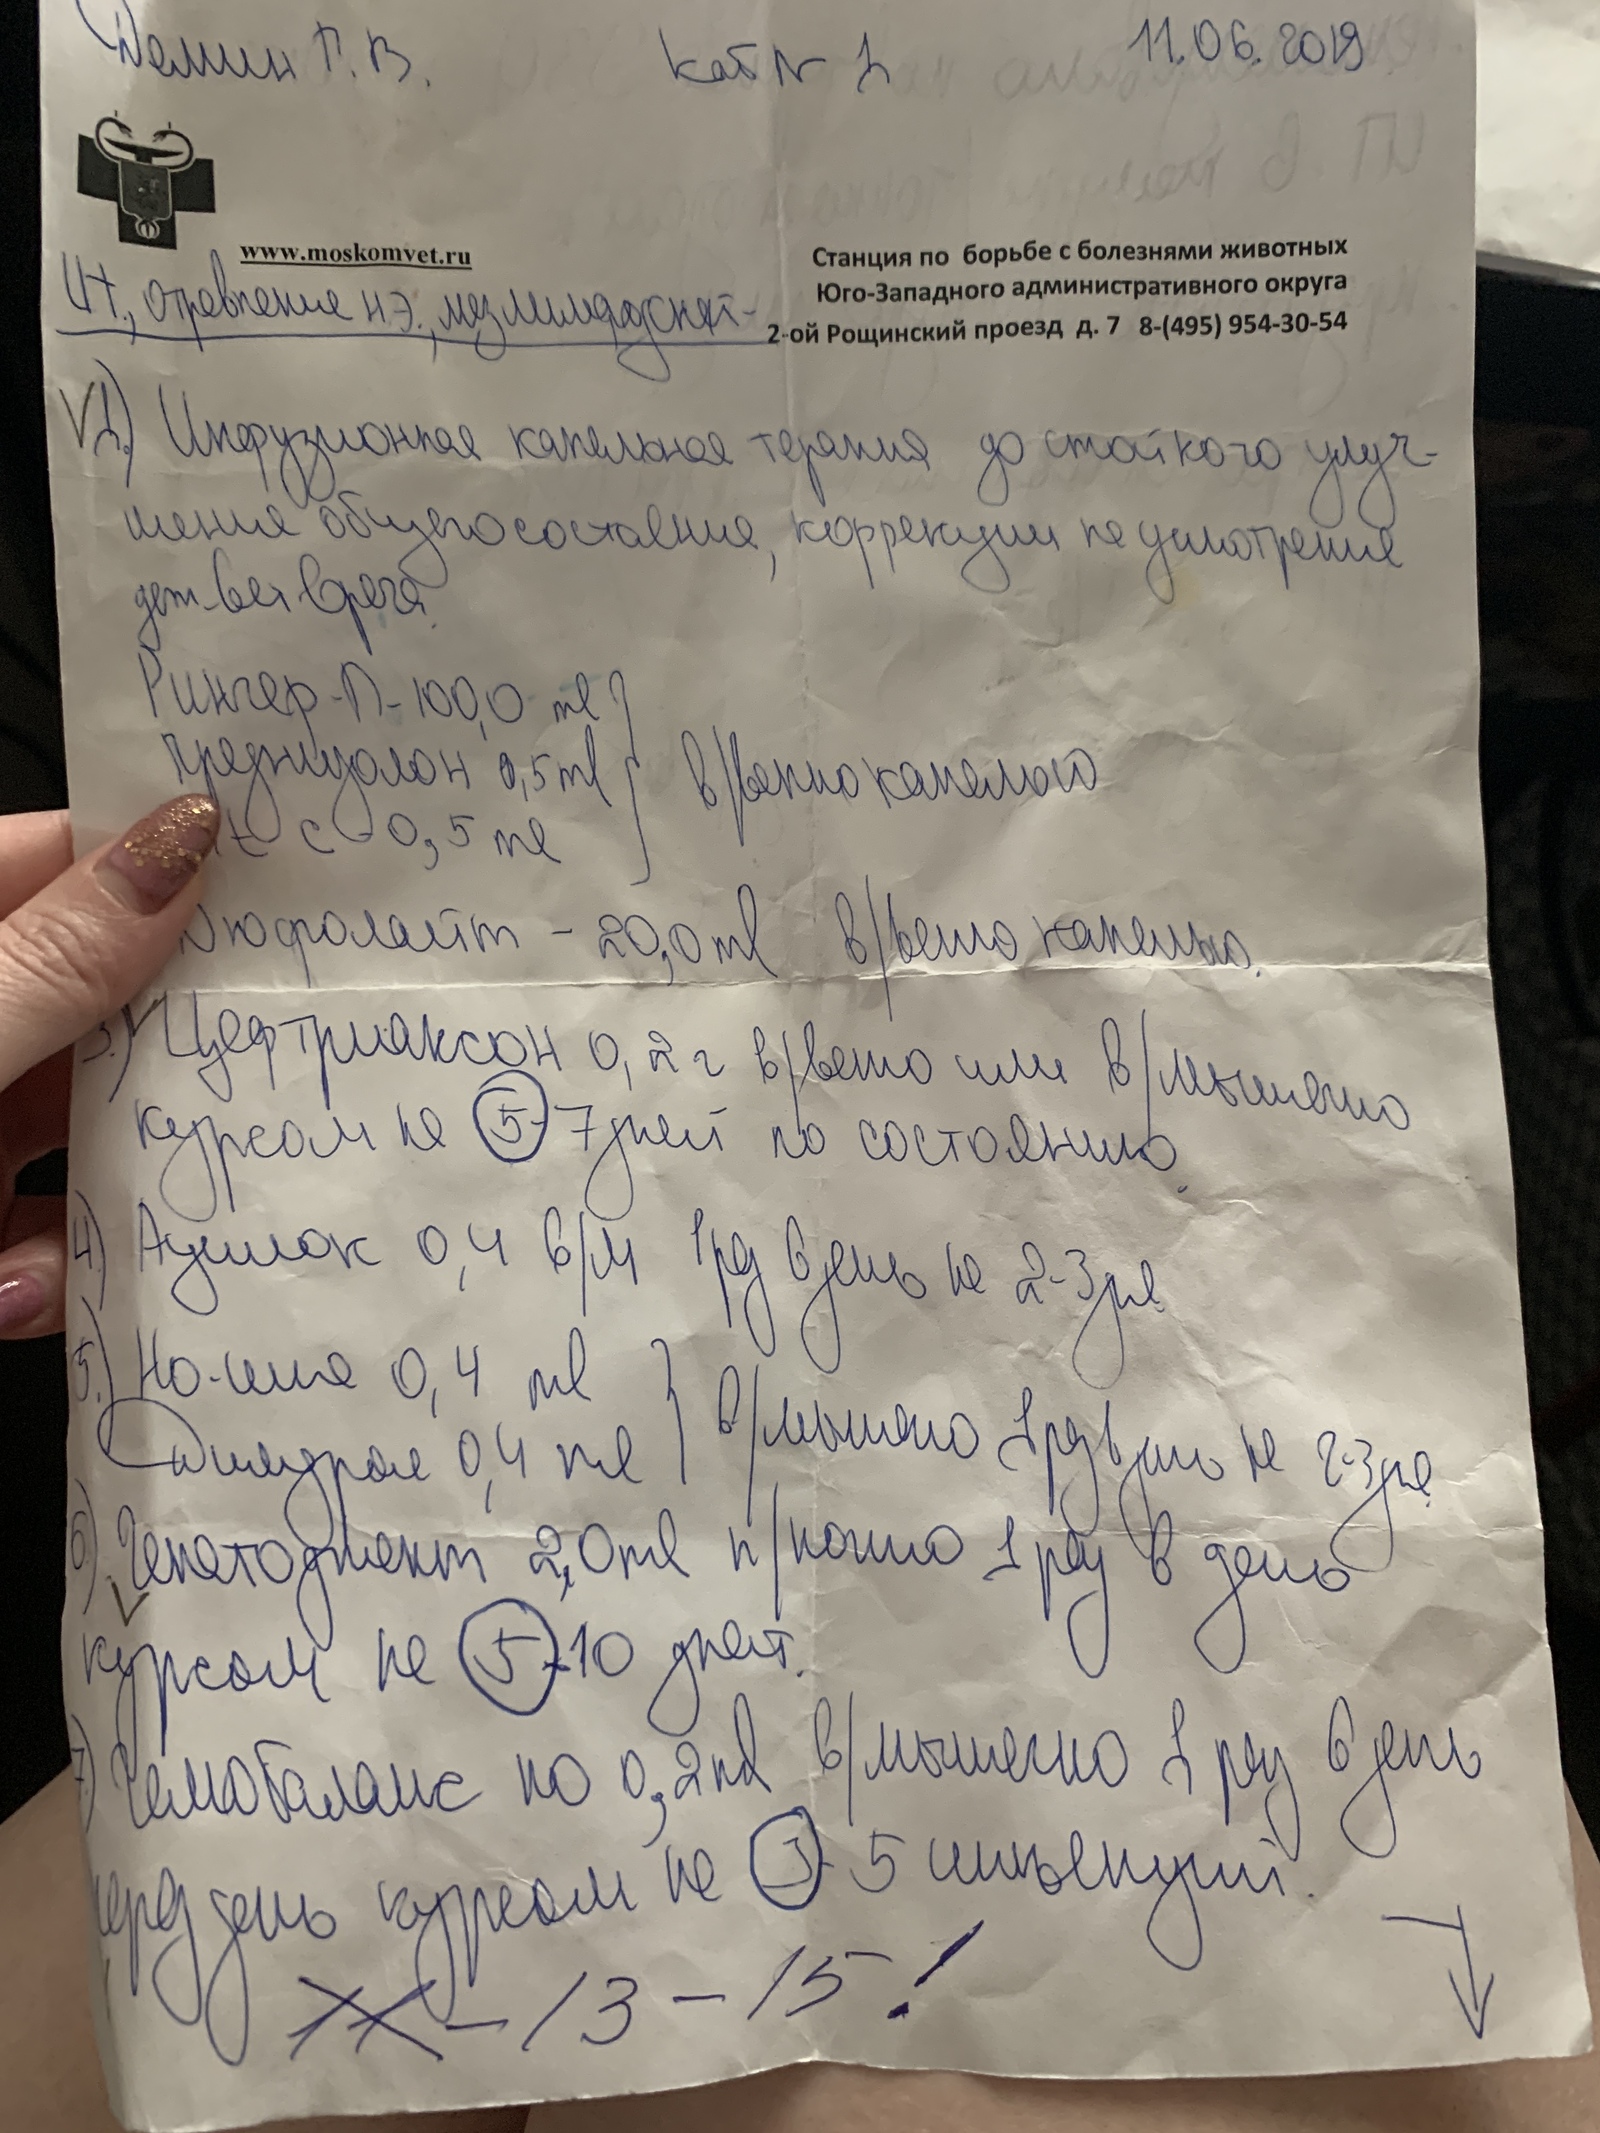 Демин Г. В. Каб № 1 11.06.2019
www.moskomvet.ru
Станция по борьбе с болезнями животных
Юго-Западного административного округа
2-ой Рощинский проезд д. 7 8-(495) 954-30-54
отравление н.э.,
1.) Инфузионная капельная терапия до стойкого улуч-
шения общего состояния, коррекции на усмотрение
деж. вет врача.
Рингер-Л-100,0 ml
Преднизолон 0,5 ml в/венно капельно
с - 0,5 ml
Дюфолайт - 20,0 ml в/венно капельно.
3.) Цефтриаксон 0,2 г в/венно или в/мышечно
курсом на 5-7 дней по состоянию.
4) 0,4 в/м 1 раз в день на 2-3 дня
5.) Но-шпа 0,4 ml
Димедрол 0,4 ml в/мышечно 1 раз в день на 2-3 дня
6) Гепатоджект 2,0 ml п/кожно 1 раз в день
курсом на 5-10 дней.
7.) Гемобаланс по 0,2 ml в/мышечно 1 раз в день
через день курсом на 3-5 инъекций.
- 13 - 15!